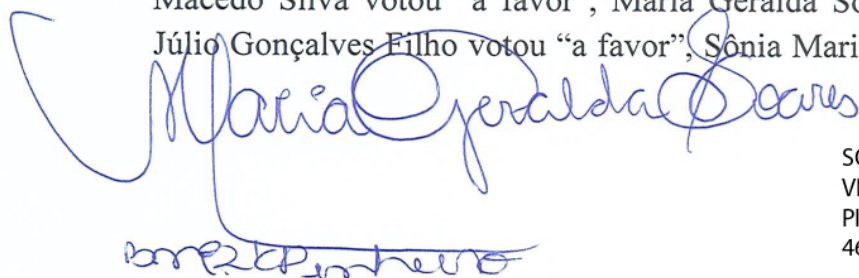 Macedo Silva votou “a favor”, Maria Geralda So
Júlio Gonçalves Filho votou “a favor”, Sônia Mari
Maria Geralda Soares
SC
VI
46
Pinheiro